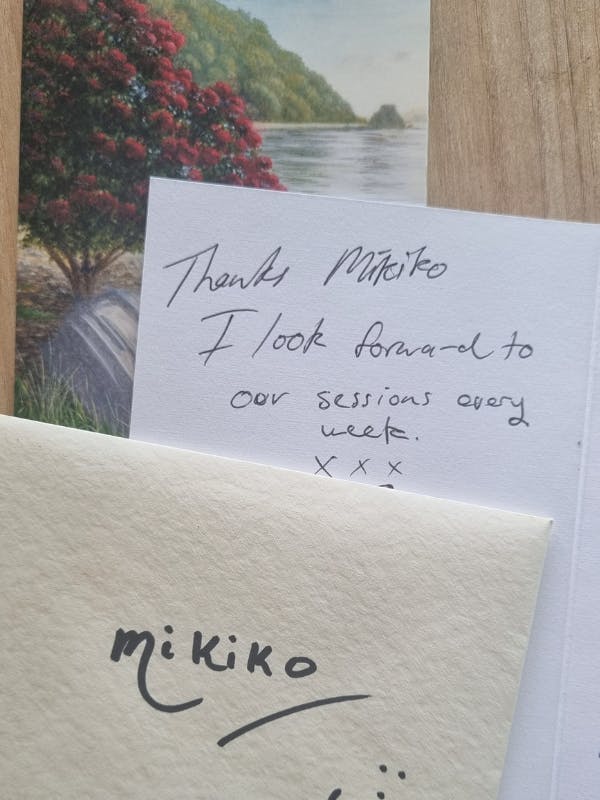 Thanks Mikiko
I look forward to
our sessions every
week.
x x x
mikiko